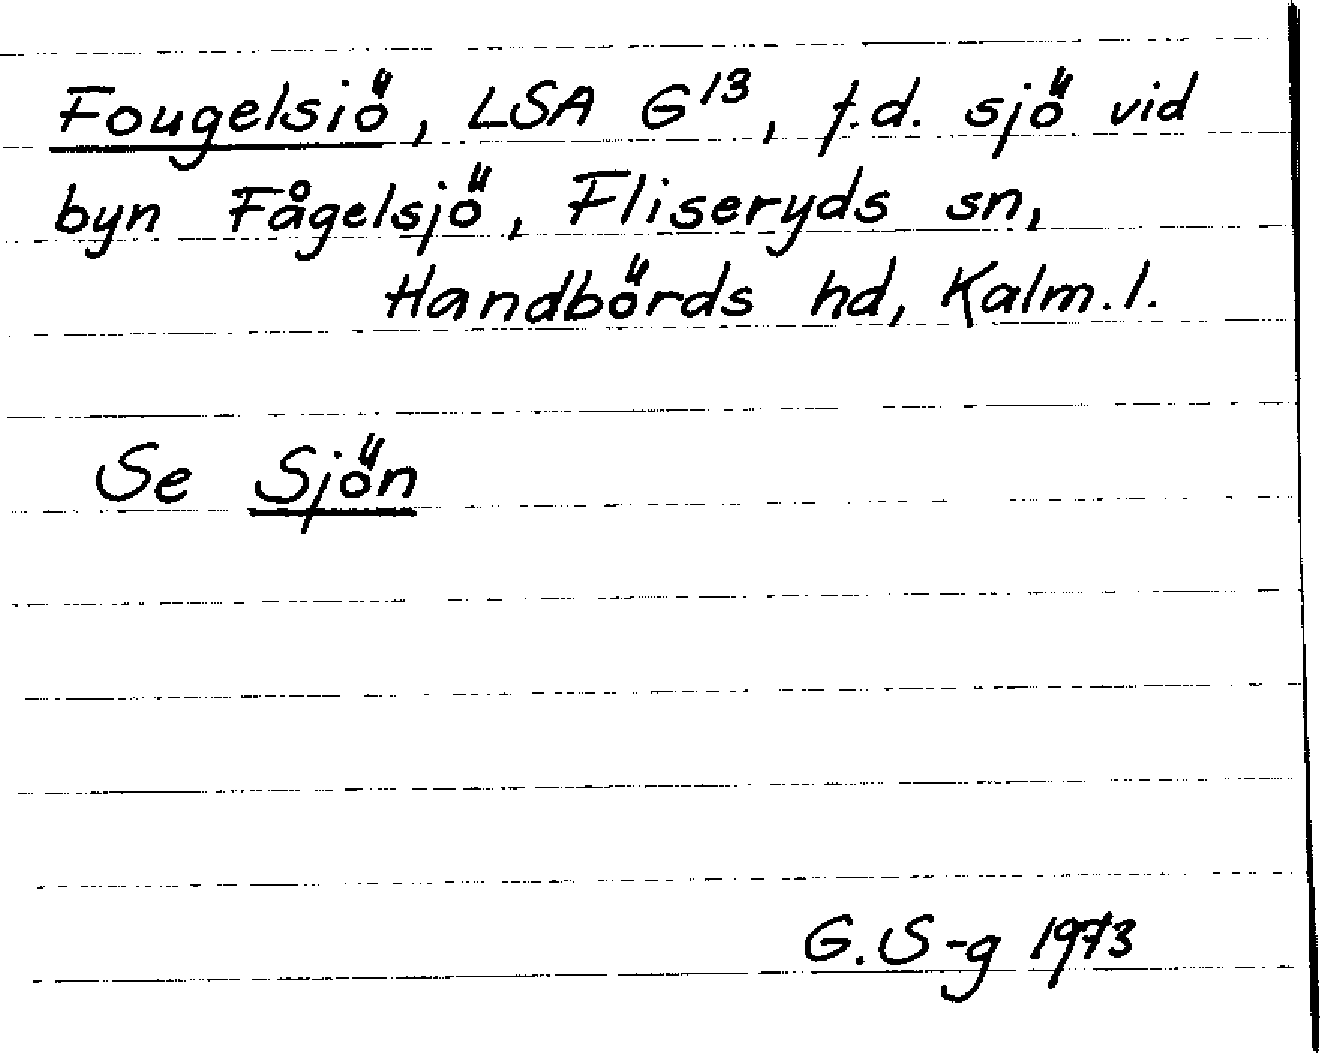 Fougelsiö, LSA G¹³, f.d. sjö vid
byn Fågelsjö, Fliseryds sn,
Handbörds hd, Kalm. l.
Se Sjön
G. S-g 1973